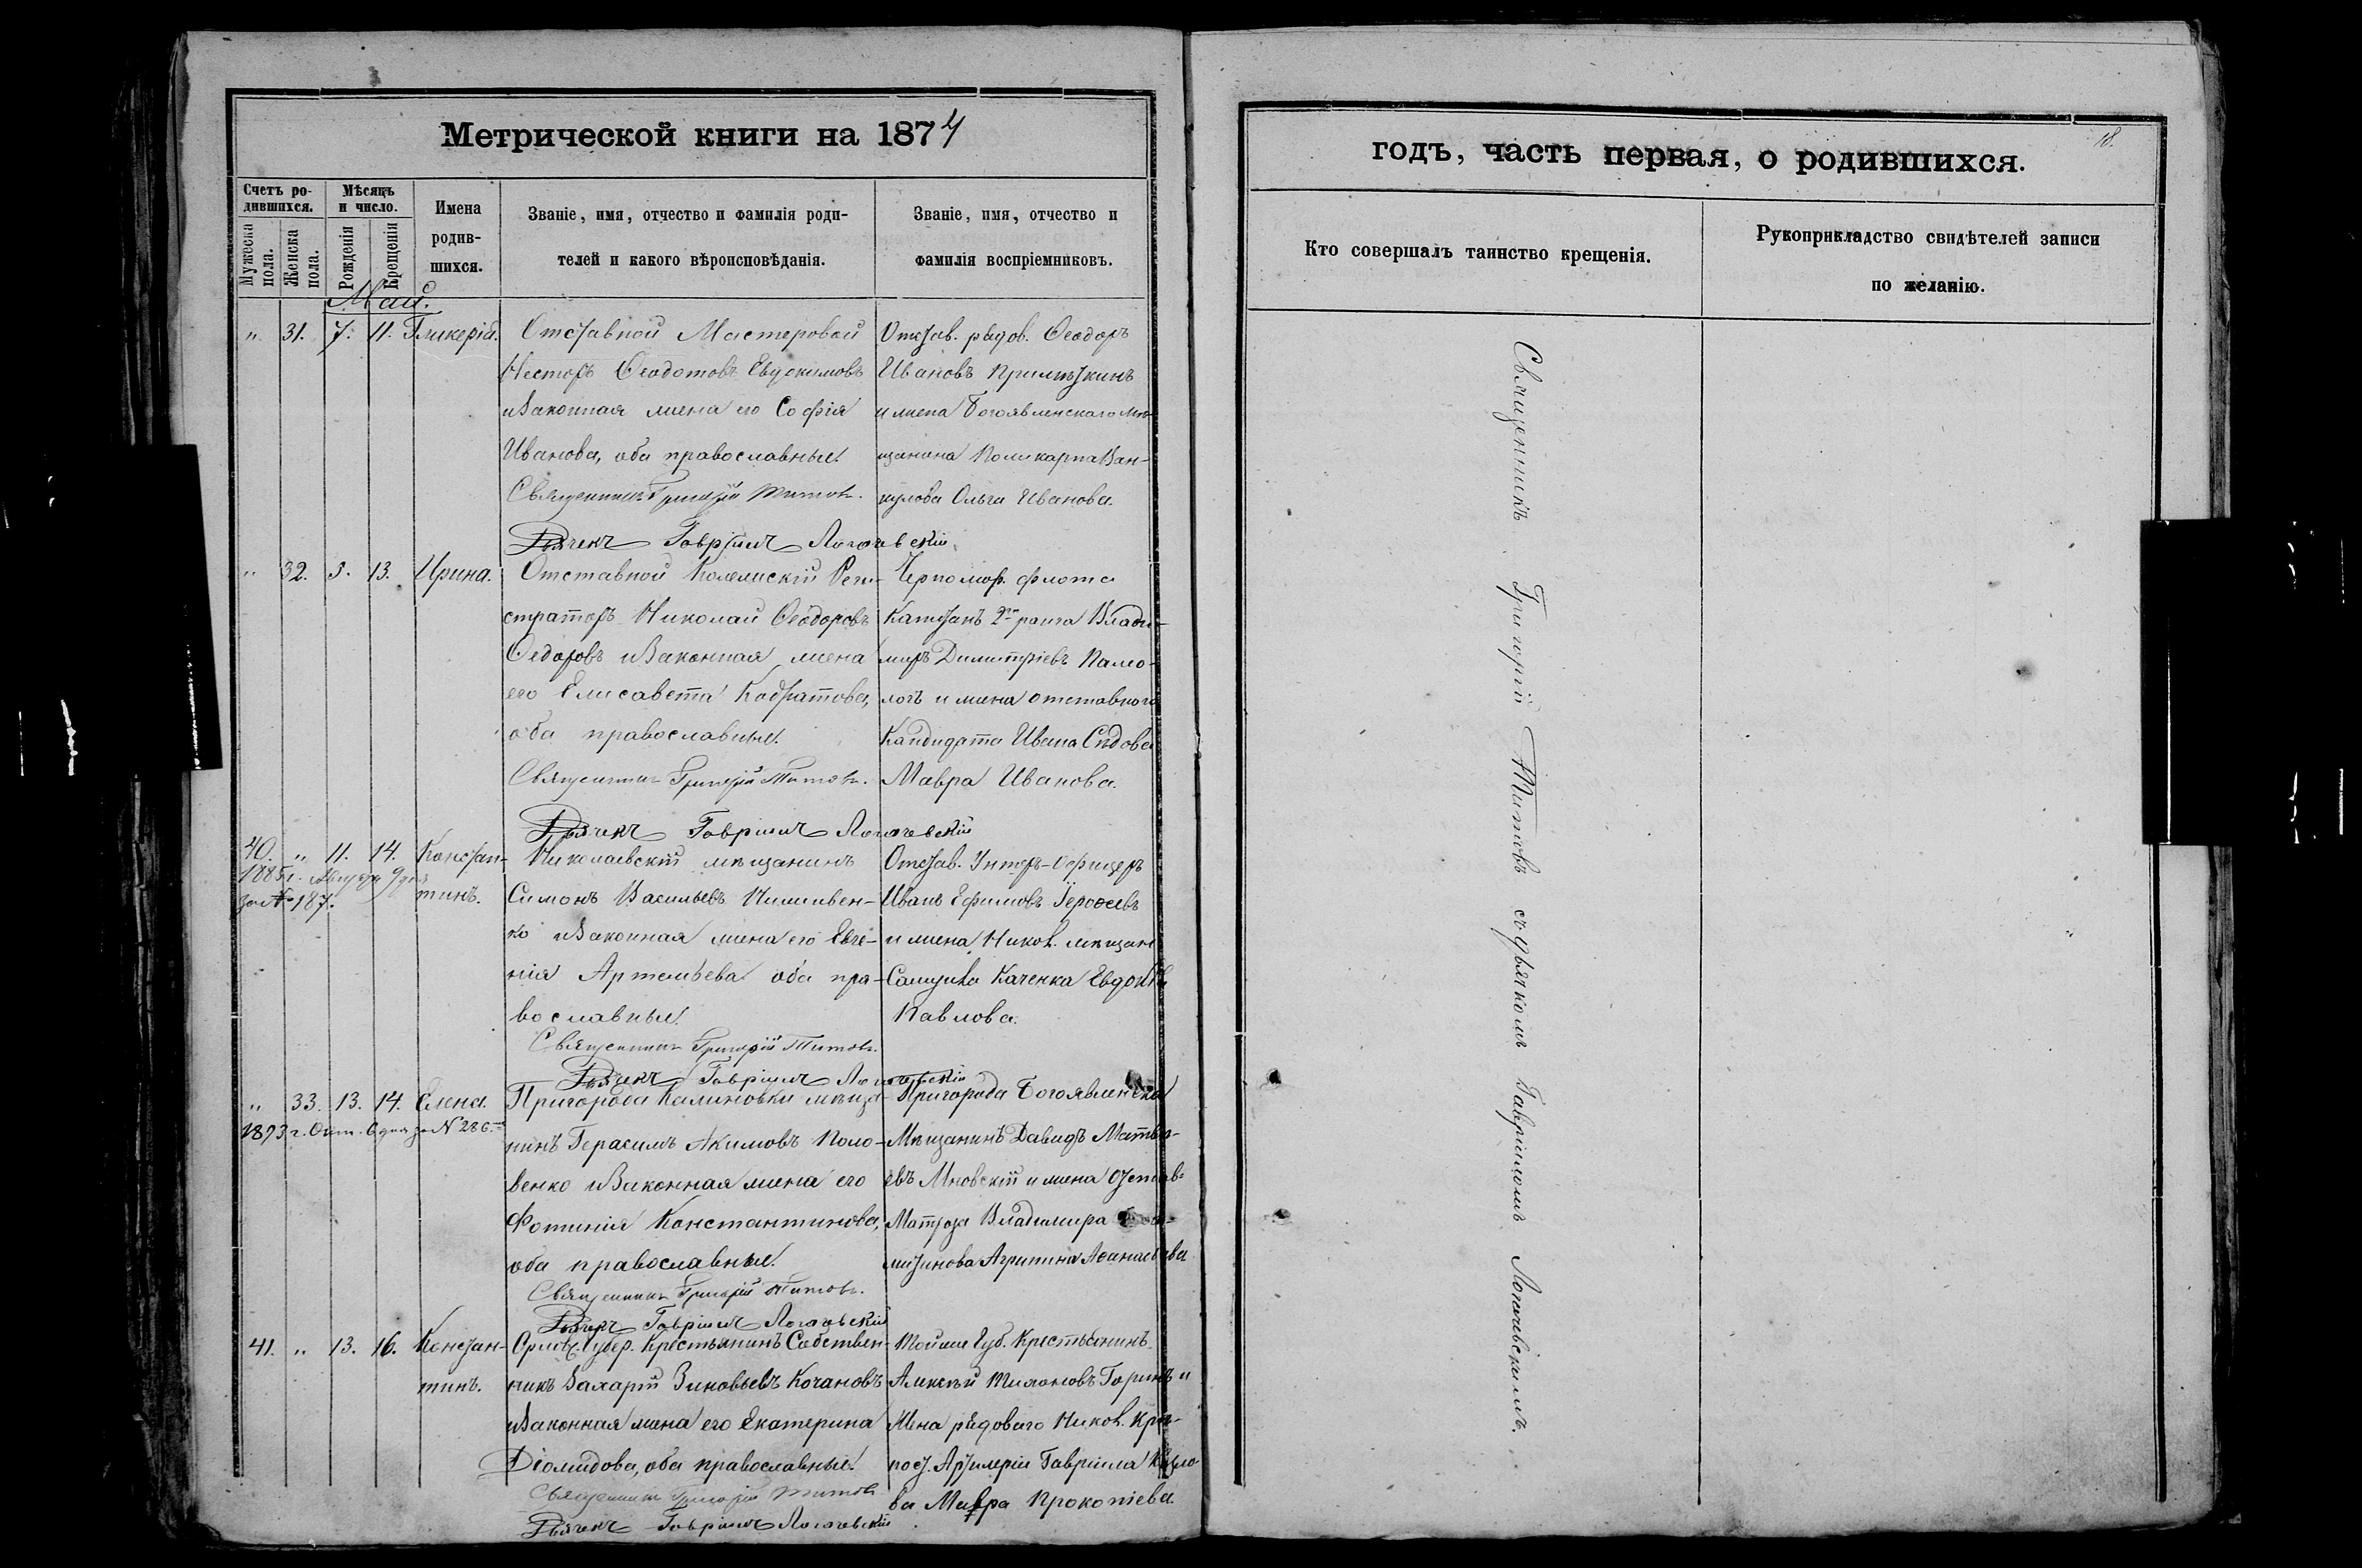 Метрической книги на 1874
Счетъ ро-
дившихся.
Мужеска
пола.
Женска
пола.
Мѣсяцъ
и число.
Рожденія
Крещенія
Имена
родив-
шихся.
Званіе, имя, отчество и фамилія роди-
телей и какого вѣроисповѣданія.
Званіе, имя, отчество и
фамилія воспріемниковъ.
Май.
" 31. 7. 11. Гликерія.
Отставной Мастеровой
Несторъ Ѳеодотовъ Евдокимовъ
и законная жена его Софія
Иванова, оба православные.
Священникъ Григорій Титовъ.
Дьячекъ Гавріилъ Логачевскій
Отстав. рядов. Ѳеодоръ
Ивановъ
и жена Богоявленскаго мѣ-
щанина Поликарпа Ван-
кулова Ольга Иванова.
" 32. 5. 13. Ирина.
Отставной Колежскій Реги-
страторъ Николай Ѳеодоровъ
Ѳедоровъ и законная жена
его Елисавета Кодратова,
оба православные.
Священникъ Григорій Титовъ.
Дьячекъ Гавріилъ Логачевскій
Черномор. флота
Капитанъ 2го ранга Влади-
миръ Димитріевъ Палео-
логъ и жена отставного
Кандидата Ивана Сѣдова
Мавра Иванова.
40. " 11. 14. Констан-
тинъ.
1885 г. Августа 9 дня
за № 187.
Николаевскій мѣщанинъ
Симонъ Васильевъ
ко и законная жена его Евге-
нія Артемьева оба пра-
вославные.
Священникъ Григорій Титовъ.
Дьячекъ Гавріилъ Логачевскій
Отстав. Унтеръ-Офицеръ
Иванъ Ефимовъ Іероѳеевъ
и жена Никол. мѣщан
Самуила Каченка Евдокія
Павлова.
" 33. 13. 14. Елена.
1893 г. Окт. 6 дня за N 286.
Пригорода Калиновки мѣща-
нинъ Герасимъ Акимовъ Поло-
венко и законная жена его
Фотинія Константинова,
оба православные.
Священникъ Григорій Титовъ.
Дьячекъ Гавріилъ Логачевскій
Пригорода Богоявленска
Мѣщанинъ Давидъ Матвѣ-
евъ и жена отстав-
Матроза Владимира
Агрипина Аѳанасьева
41. " 13. 16. Констан-
тинъ.
Орлов. Губер. Крестьянинъ Собствен-
никъ Захарій Зиновьевъ Кочановъ
и законная жена его Екатерина
Діомидова, оба православные.
Священникъ Григорій Титовъ
Дьячекъ Гавріилъ Логачевскій
Той же Губ. Крестьянинъ
Алексѣй Тихоновъ Горинъ и
жена рядоваго Никол. Крѣ-
пост. Артилеріи Гавріила Козло-
ва Мавра Прокопіева.
годъ, часть первая, о родившихся.
18.
Кто совершалъ таинство крещенія.
Рукоприкладство свидѣтелей записи
по желанію.
Священникъ Григорій Титовъ съ дьячкомъ Гавріиломъ Логачевскимъ.